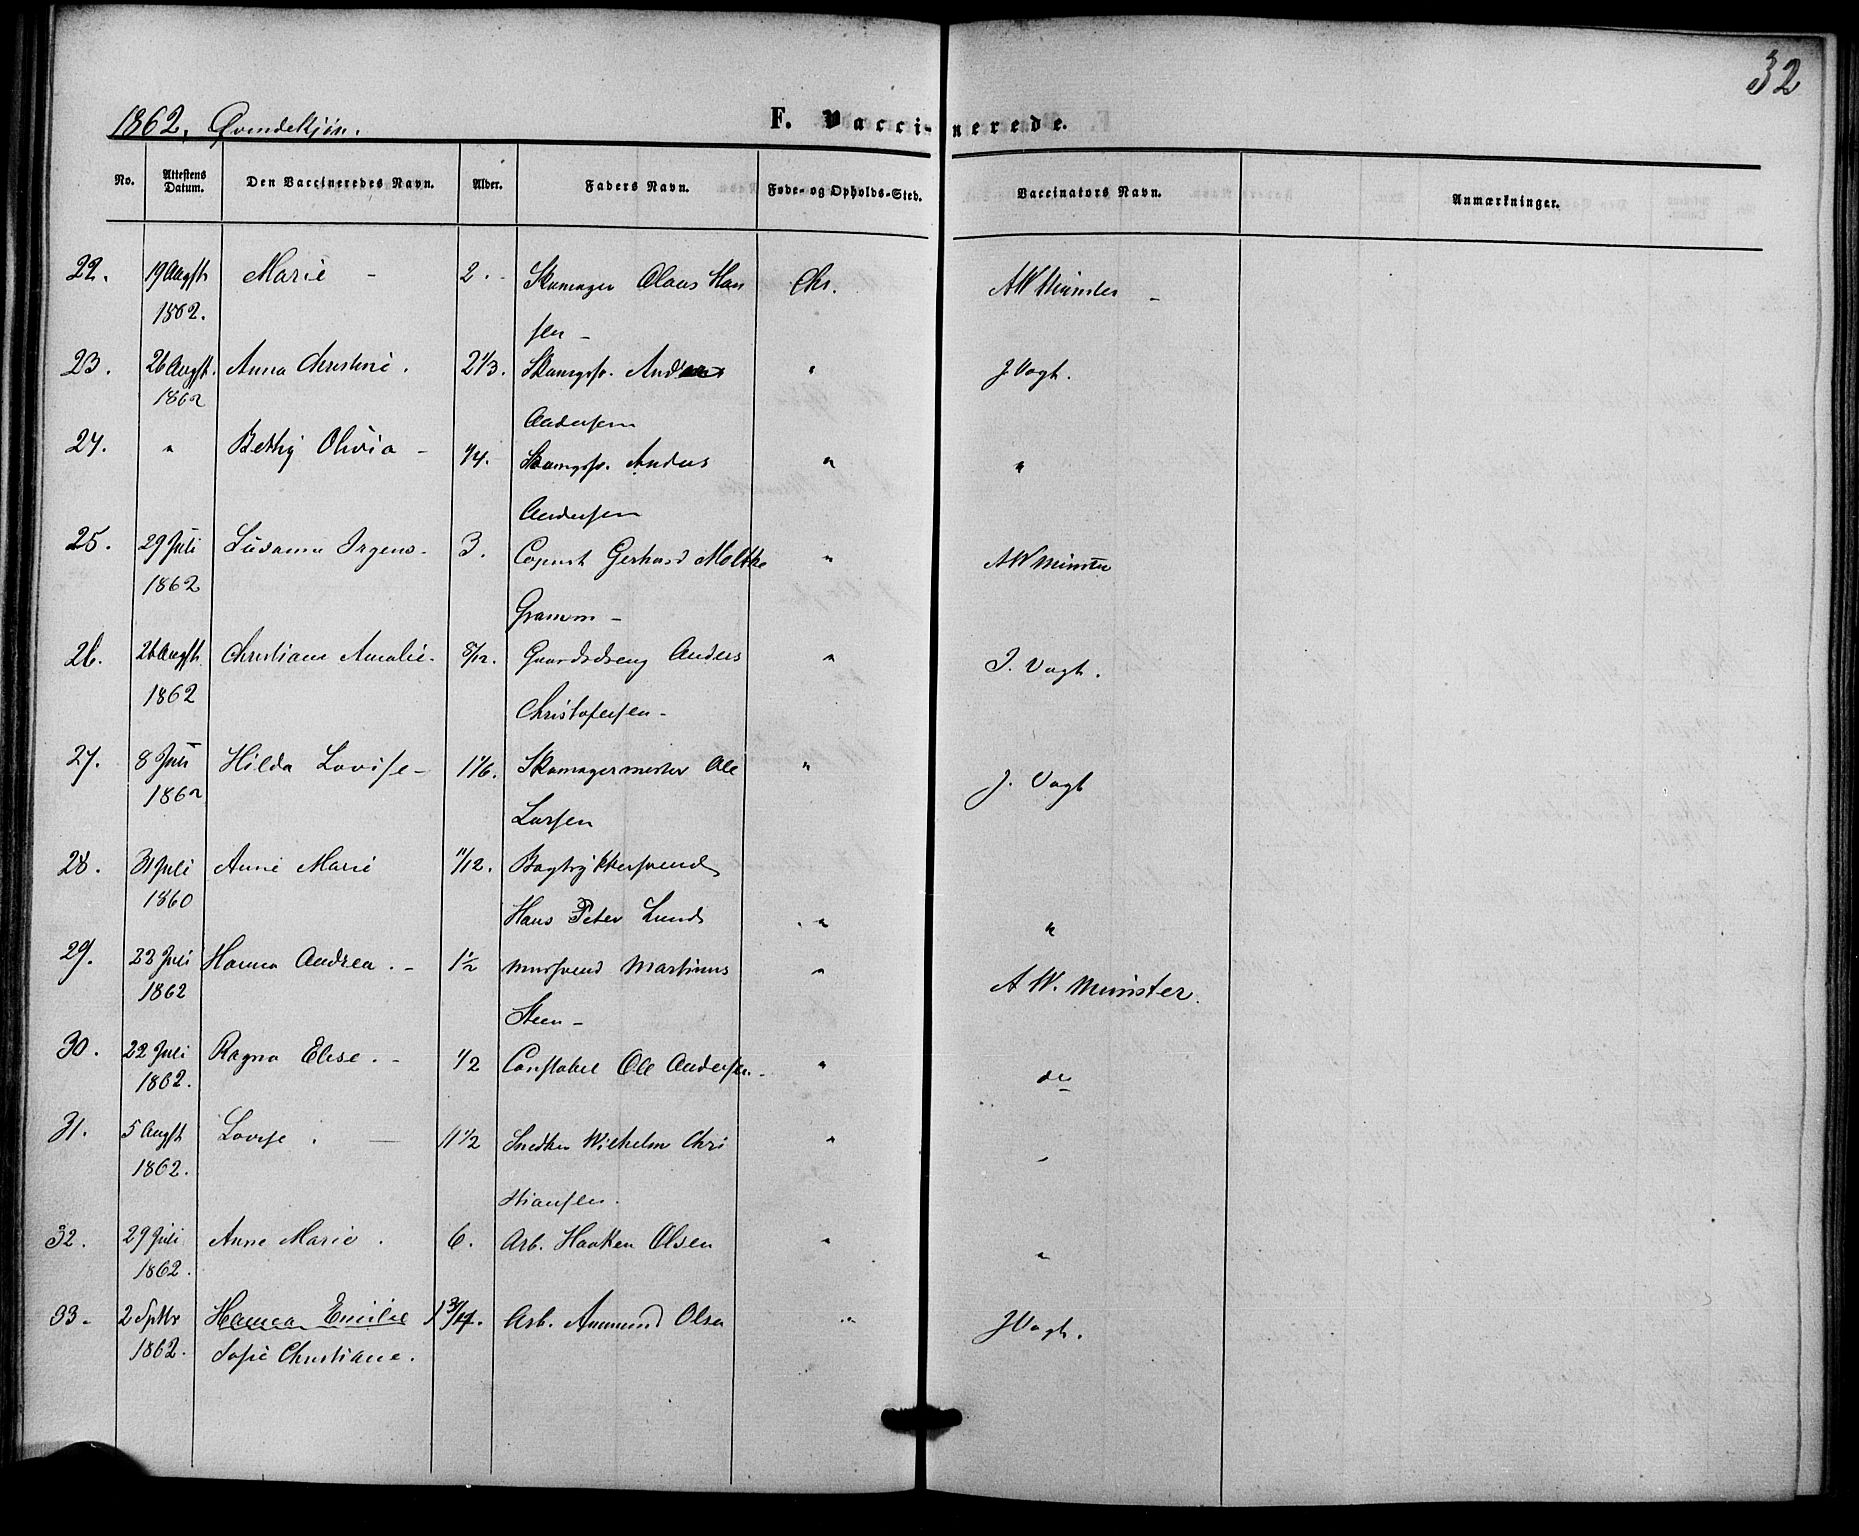 32
1862. Qvindekjøn. F. Vaccinerede.
No. Attestens Datum. Den Vaccineredes Navn. Alder. Faders Navn. Føde- og Opholds-Sted. Vaccinators Navn. Anmærkninger.
22. 19 Augst Marie - 2. - Skomager Olaus Han Chr. AW Münster -
1862. sen -
23. 26 Augst. Anna Christine. 2 1/3. Skomgsv. Anders " J Vogt.
1862 Andersen
24. " Bethy Olivia - 1/4. Skomgsv. Anders " "
Andersen
25. 29 Juli Susanne Irgens - 3. Copiist Gerhard Moltke " AW Münster
1862 Gramm -
26. 26 Augst. Christiane Amalie. 8/12. Anders " J. Vogt.
1862 Christofersen -
27. 8 Juli Hilda Lovise - 1 1/6. Skomagermester Ole " J. Vogt
1862 Larsen
28. 31 Juli Anne Marie 11/12. Bogtrykkersvend
1860 Hans Peter Lund " "
29. 22 Juli Hanna Andrea. - 1 1/2 Mursvend Martinus " A W. Münster.
1862 Steen -
30. 22 Juli Ragna Elise. - 1/2 Constabel Ole Andersen - " do
1862.
31. 5 Augst Lovise. - 1 1/2 Snedker Wilhelm Chri " "
1862. stiansen.
32. 29 Juli Anne Marie. 6. Arb. Haaken Olsen " "
1862.
33. 2 Sptbr Hanna Emilie 1 3/4. Arb. Ammund Olsen " J Vogt.
1862. Sofie Christiane.